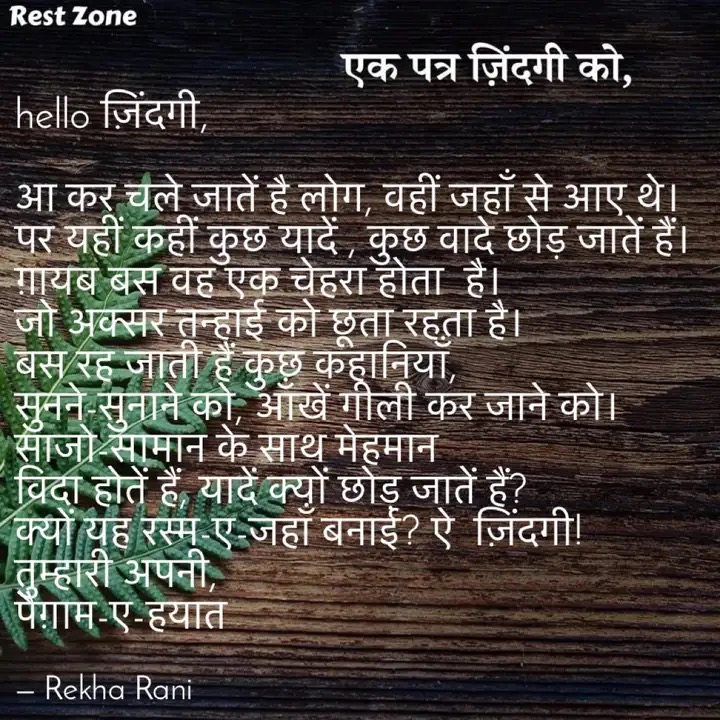 Rest Zone
एक पत्र ज़िंदगी को,
hello ज़िंदगी,
आ कर चले जातें है लोग, वहीं जहाँ से आए थे।
पर यहीं कहीं कुछ यादें , कुछ वादे छोड़ जातें हैं।
ग़ायब बस वह एक चेहरा होता है।
जो अक्सर तन्हाई को छूता रहता है।
बस रह जाती हैं कुछ कहानियाँ,
सुनने-सुनाने को, आँखें गीली कर जाने को।
साजो-सामान के साथ मेहमान
विदा होतें हैं, यादें क्यों छोड़ जातें हैं?
क्यों यह रस्म-ए-जहाँ बनाई? ऐ ज़िंदगी!
तुम्हारी अपनी,
पैग़ाम-ए-हयात
– Rekha Rani